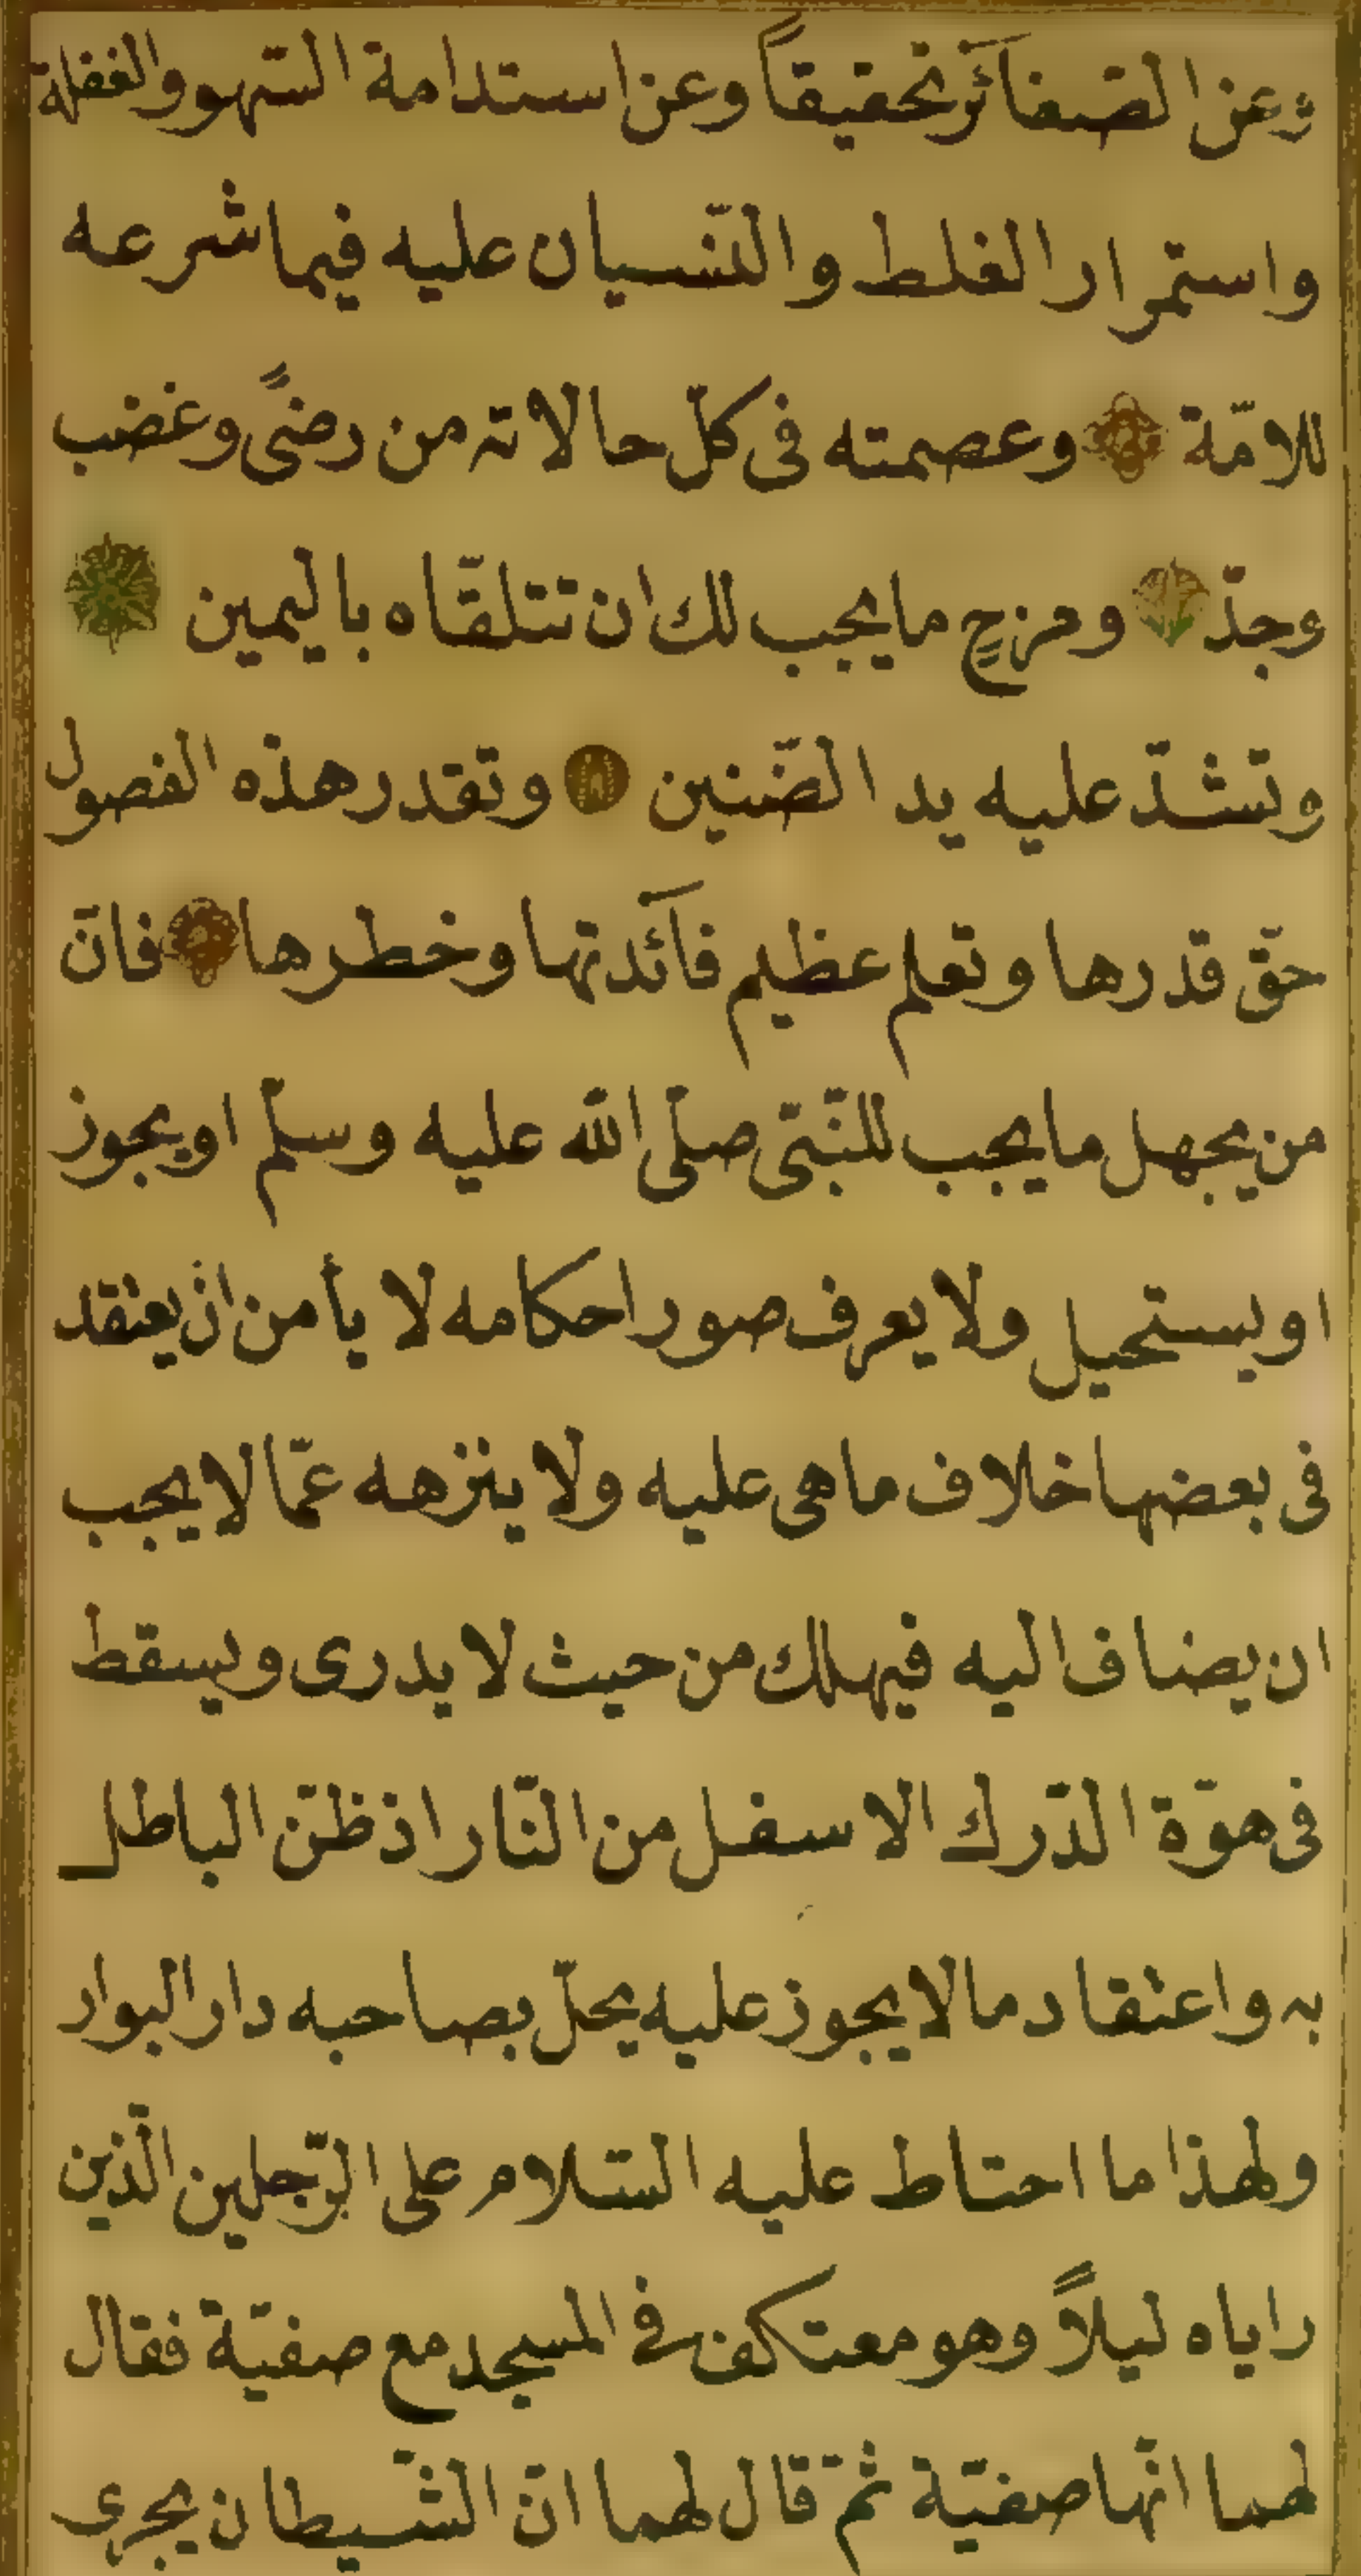 وعن الصّغائر تحقيقاً وعن استدامة السّهو والغفلة
واستمرار الغلط والنّسيان عليه فيما شرعه
للامّة وعصمته فى كلّ حالاته من رضىً وغضب
وجدّ ومزحٍ ما يجب لك ان تتلقّاه باليمين
وتشدّ عليه يد الضّنين وتقدر هذه الفصول
حقّ قدرها وتعلم عظيم فآئدتها وخطرها فانّ
من يجهل ما يجب للنّبىّ صلّى الله عليه وسلّم او يجوز
او يستحيل ولا يعرف صور احكامه لا يأمن ان يعتقد
فى بعضها خلاف ما هى عليه ولا ينزهه عمّا لا يجب
ان يضاف اليه فيهلك من حيث لا يدرى ويسقط
فى هوّة الدّرك الاسفل من النّار اذ ظنّ الباطل
به واعتقاد ما لا يجوز عليه يحلّ بصاحبه دار البوار
ولهذا ما احتاط عليه السّلام على الرّجلين الّذين
راياه ليلاً وهو معتكف فى المسجد مع صفيّة فقال
لهما انّها صفيّة ثمّ قال لهما انّ الشّيطان يجرى